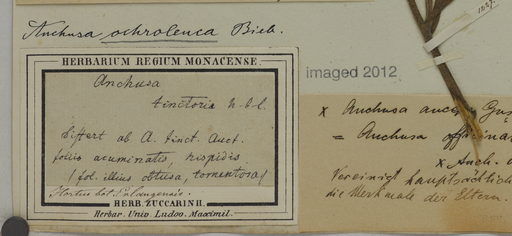 Anchusa ochroleuca Bieb.
HERBARIUM REGIUM MONACENSE
Anchusa
tinctoria
differt ab A. tinct. Auct.
foliis acuminatis, hispidis
(fol. illius obtusa, tomentosa)
Hortus bot.
HERB. ZUCCARINII.
Herbar. Univ. Ludov. Maximil.
imaged 2012
x Anchusa
= Anchusa
x Anch.
Vereinigt hauptsächlich
die Merkmale der Eltern.